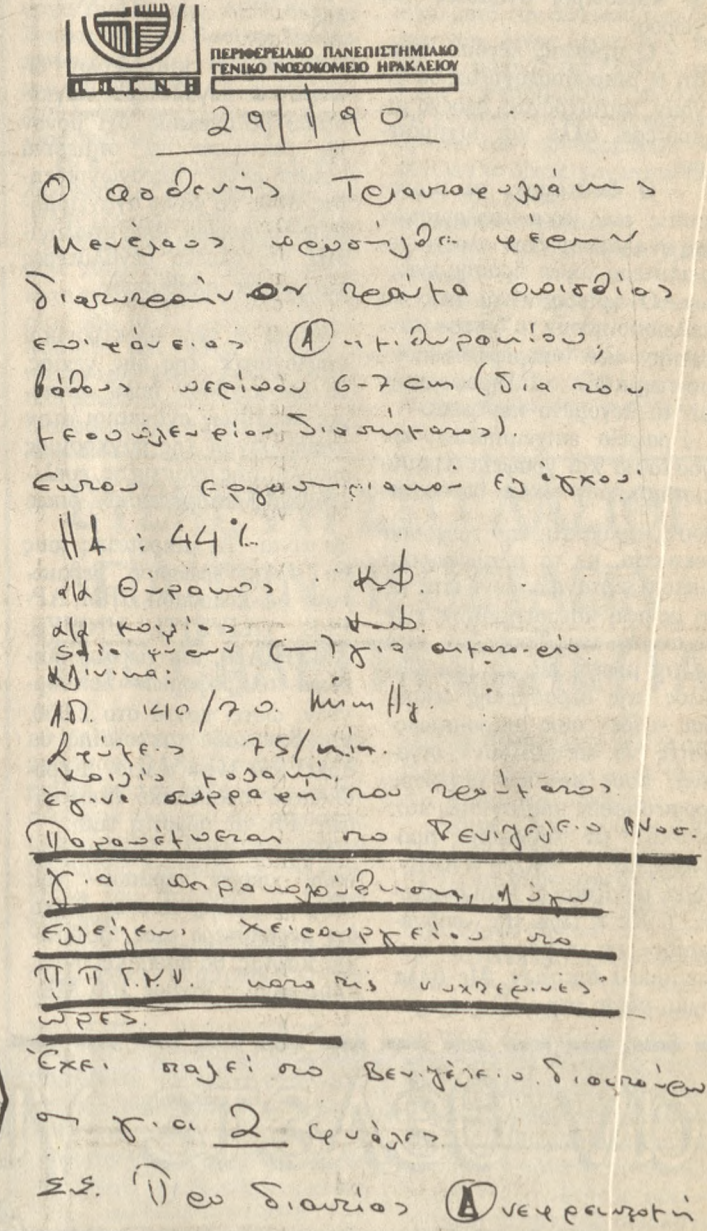 Π Π Γ Ν Η
ΠΕΡΙΦΕΡΕΙΑΚΟ ΠΑΝΕΠΙΣΤΗΜΙΑΚΟ
ΓΕΝΙΚΟ ΝΟΣΟΚΟΜΕΙΟ ΗΡΑΚΛΕΙΟΥ
29/1/90
Ο ασθενής Τριανταφυλλάκης
Μενέλαος προσήλθε φέρων
διατιτραίνον τραύμα οπισθίας
επιφάνειας (Α) ημιθωρακίου,
βάθους περίπου 6-7 cm (δια του
μεσοπλευρίου διαστήματος)
εργαστηριακού ελέγχου:
Ht : 44%
α/α Θώρακος Κ.Φ.
α/α κοιλίας Κ.Φ.
(—) για
Κλινικά:
Α.Π. 140/70 mm Hg.
Σφύξεις 75/min.
Κοιλία μαλακή.
Έγινε συρραφή του τραύματος
Παραπέμπεται στο Βενιζέλειο Νοσ.
για παρακολούθηση, λόγω
ελλείψεως χειρουργείου στο
Π.Π.Γ.Ν.Η. κατά τις νυχτερινές
ώρες.
Έχει σταλεί στο Βενιζέλειο διασταύρω
ση για 2 φιάλες
Σ.Σ. Προ διετίας (Α)